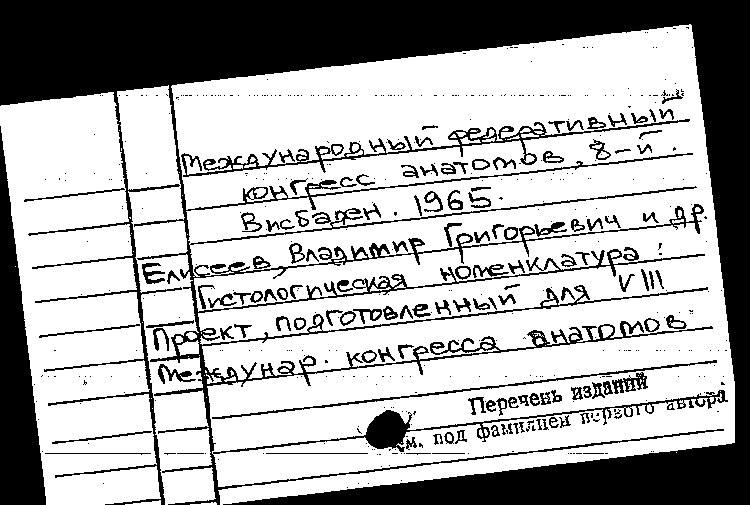 Международный федеративный
конгресс анатомов, 8-й.
Висбаден. 1965.
Елисеев, Владимир Григорьевич и др.
Гистологическая номенклатура:
Проект, подготовленный для VIII
Междунар. конгресса анатомов
Перечень изданий
см. под фамилией первого автора